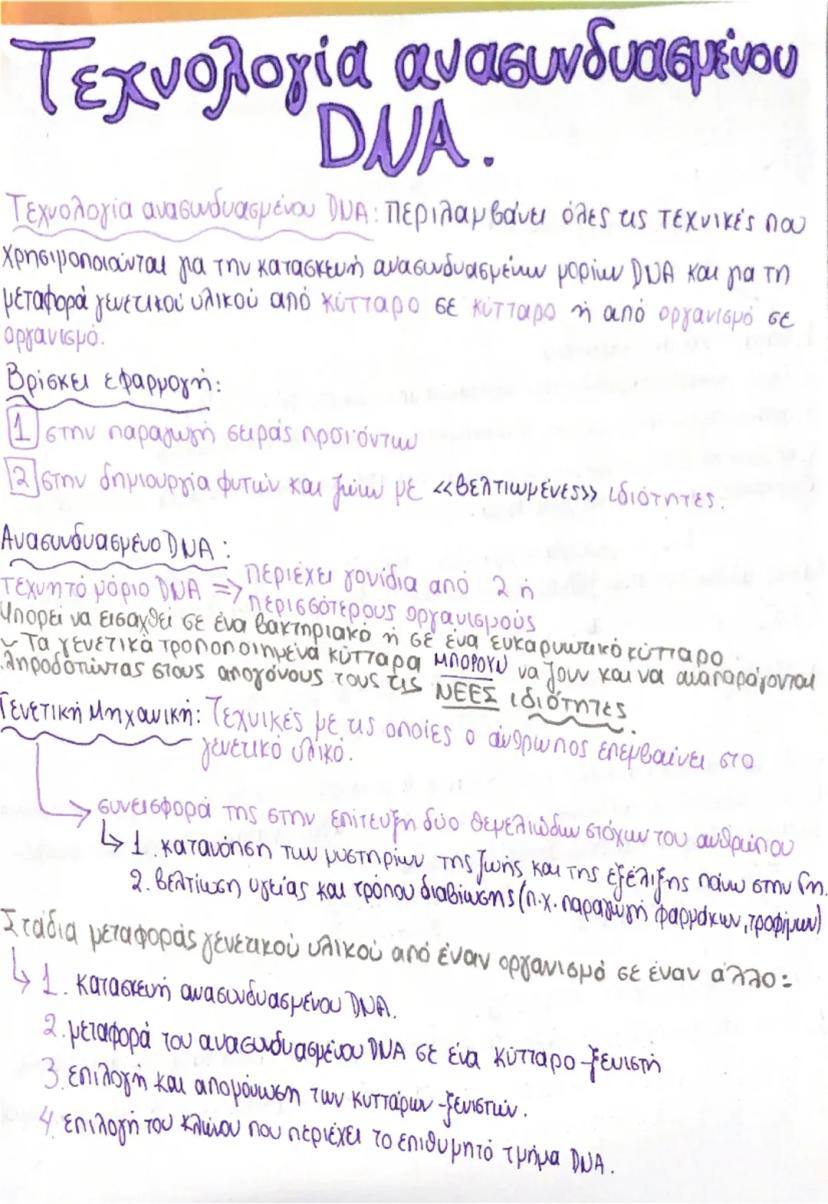 Τεχνολογία ανασυνδυασμένου
DNA.
Τεχνολογία ανασυνδυασμένου DNA: περιλαμβάνει όλες τις τεχνικές που
χρησιμοποιούνται για την κατασκευή ανασυνδυασμένων μορίων DNA και για τη
μεταφορά γενετικού υλικού από κύτταρο σε κύτταρο ή από οργανισμό σε
οργανισμό.
Βρίσκει εφαρμογή:
1 στην παραγωγή σειράς προϊόντων
2 στην δημιουργία φυτών και ζώων με <<βελτιωμένες>> ιδιότητες.
Ανασυνδυασμένο DNA:
τεχνητό μόριο DNA => περιέχει γονίδια από 2 ή
περισσότερους οργανισμούς
Μπορεί να εισαχθεί σε ένα βακτηριακό ή σε ένα ευκαρυωτικό κύτταρο
~ Τα γενετικά τροποποιημένα κύτταρα μπορούν να ζουν και να αναπαράγονται
κληροδοτώντας στους απογόνους τους τις ΝΕΕΣ ιδιότητες.
Γενετική Μηχανική: Τεχνικές με τις οποίες ο άνθρωπος επεμβαίνει στο
γενετικό υλικό.
→ συνεισφορά της στην επίτευξη δύο θεμελιωδών στόχων του ανθρώπου
↳ 1. κατανόηση των μυστηρίων της ζωής και της εξέλιξης πάνω στην Γη.
2. βελτίωση υγείας και τρόπου διαβίωσης (π.χ. παραγωγή φαρμάκων, τροφίμων)
Στάδια μεταφοράς γενετικού υλικού από έναν οργανισμό σε έναν άλλο:
↳ 1. κατασκευή ανασυνδυασμένου DNA.
2. μεταφορά του ανασυνδυασμένου DNA σε ένα κύτταρο-ξενιστή
3. επιλογή και απομόνωση των κυττάρων-ξενιστών.
4. επιλογή του κλώνου που περιέχει το επιθυμητό τμήμα DNA.